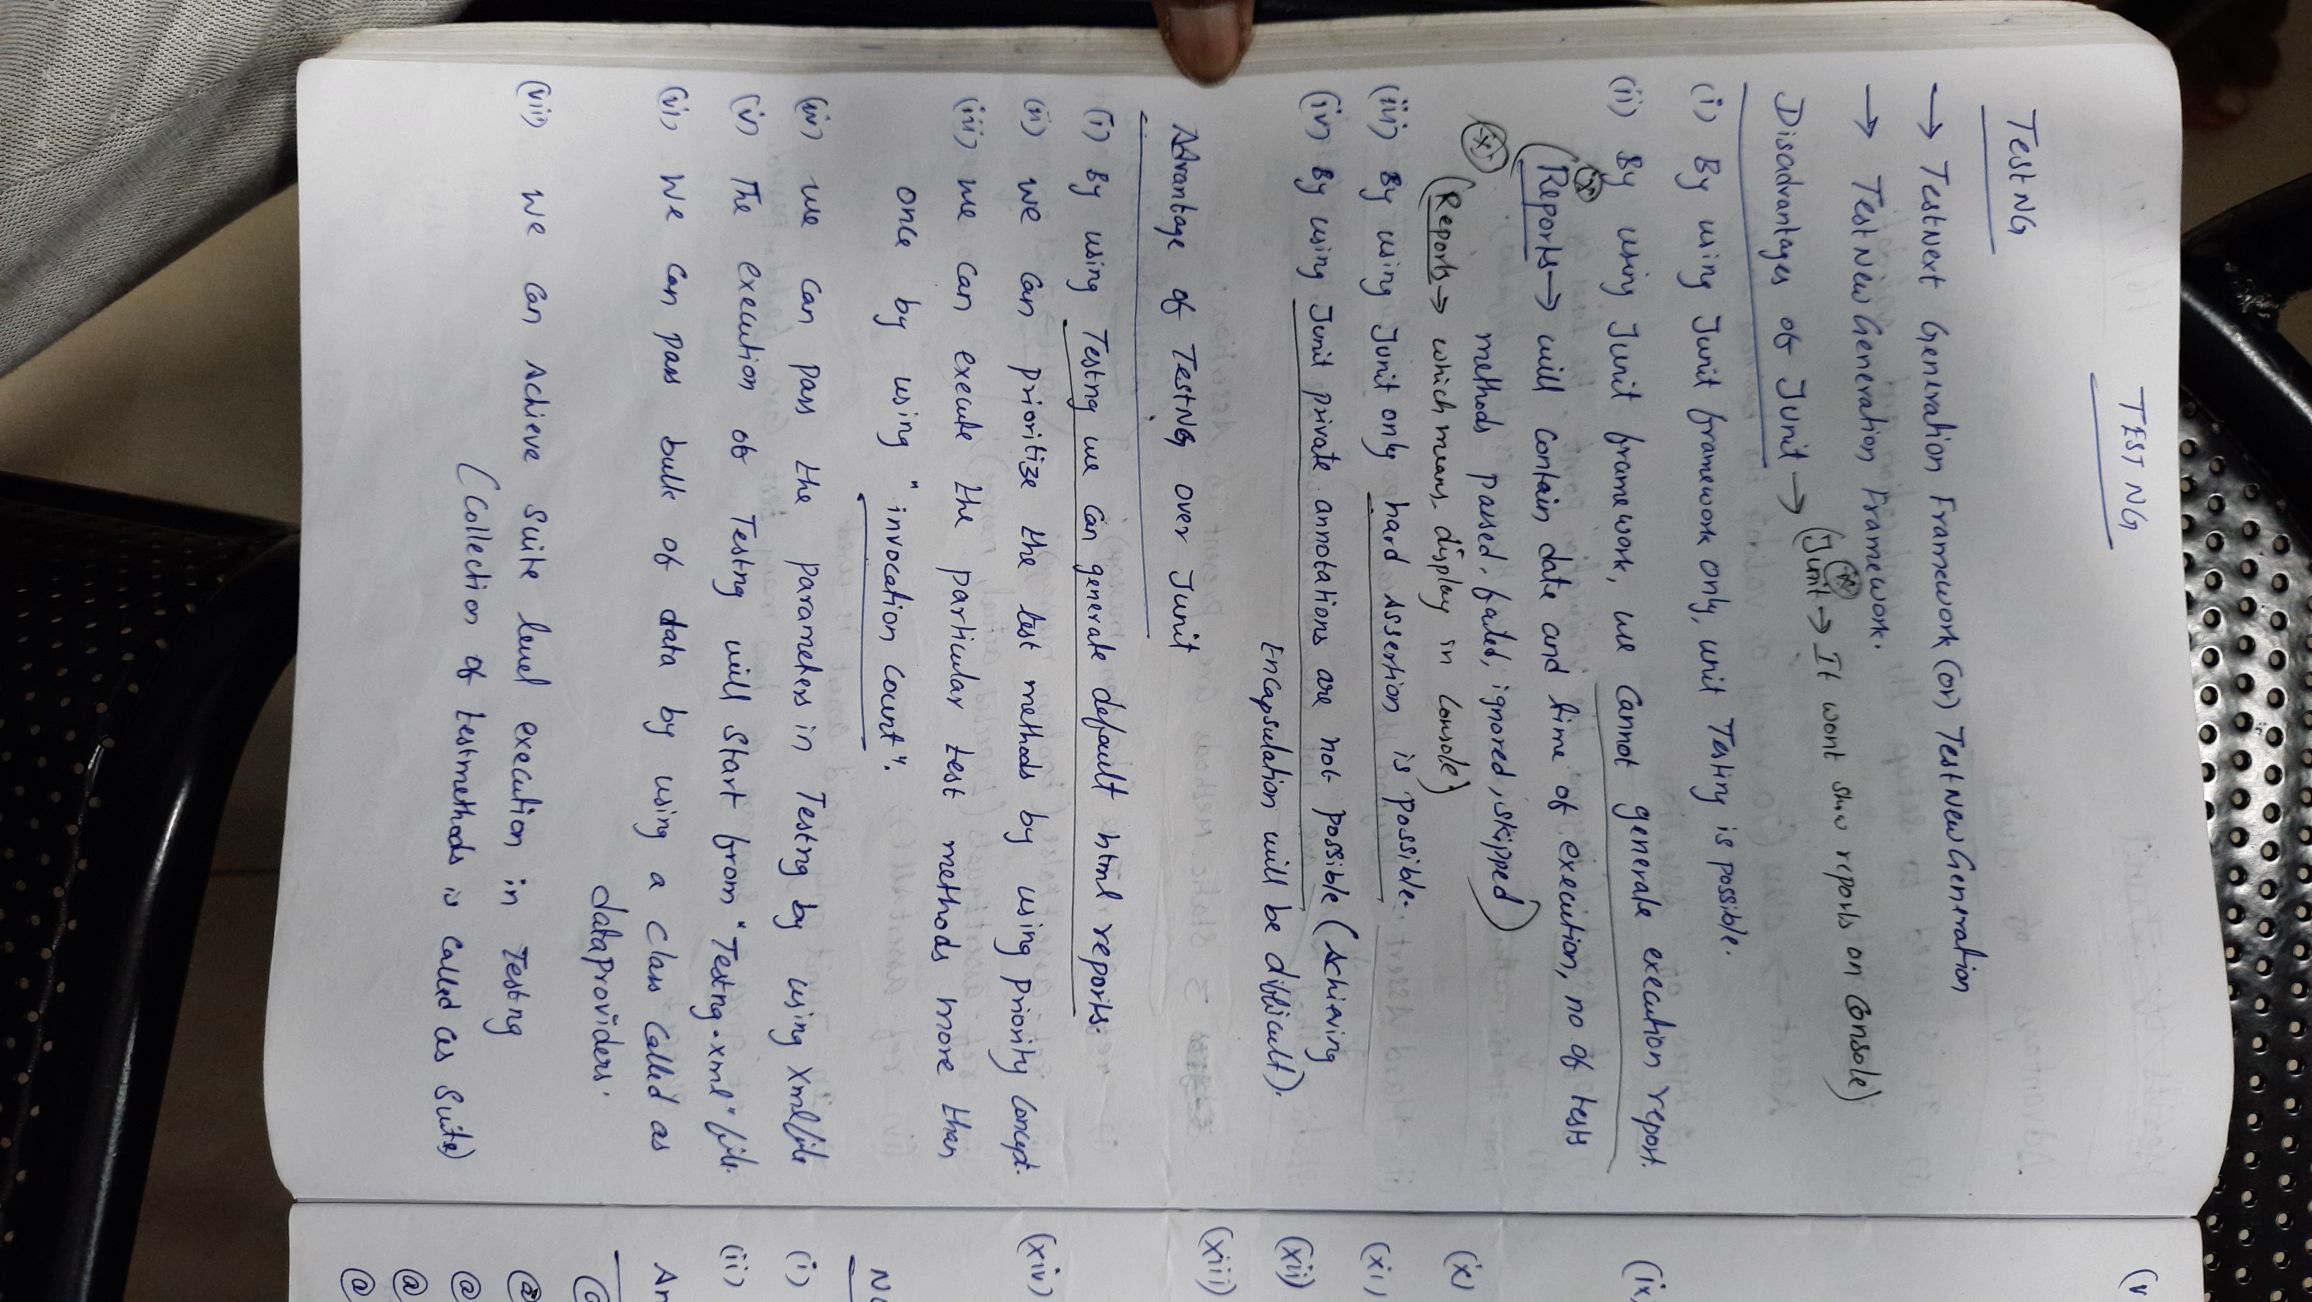 TEST NG
TestNG
→ TestNext Generation Framework (or) TestNewGeneration
→ TestNewGeneration Framework.
Disadvantages of Junit → (Junit → It wont show reports on Console)
(i) By using Junit framework only, unit Testing is possible.
(ii) By using Junit framework, we cannot generate execution report.
(Reports → will contain date and time of execution, no of tests
methods passed, failed, ignored, skipped)
(Reports → which means display in console)
(iii) By using Junit only hard Assertion is possible.
(iv) By using Junit private annotations are not possible (Achieving
Encapsulation will be difficult).
Advantage of TestNG over Junit
(i) By using Testng we can generate default html reports.
(ii) we can prioritize the test methods by using priority concept.
(iii) we can execute the particular test methods more than
once by using "invocation count".
(iv) we can pass the parameters in Testng by using xmlfile
(v) The execution of Testng will start from "Testng.xml" file.
(vi) We can pass bulk of data by using a class called as
dataproviders.
(vii) we can Achieve suite level execution in Testng
(Collection of testmethods is called as Suite)
(v
(ix
(x)
(xi)
(xii)
(xiii)
(xiv)
(i)
(ii)
An
@
@
@
@